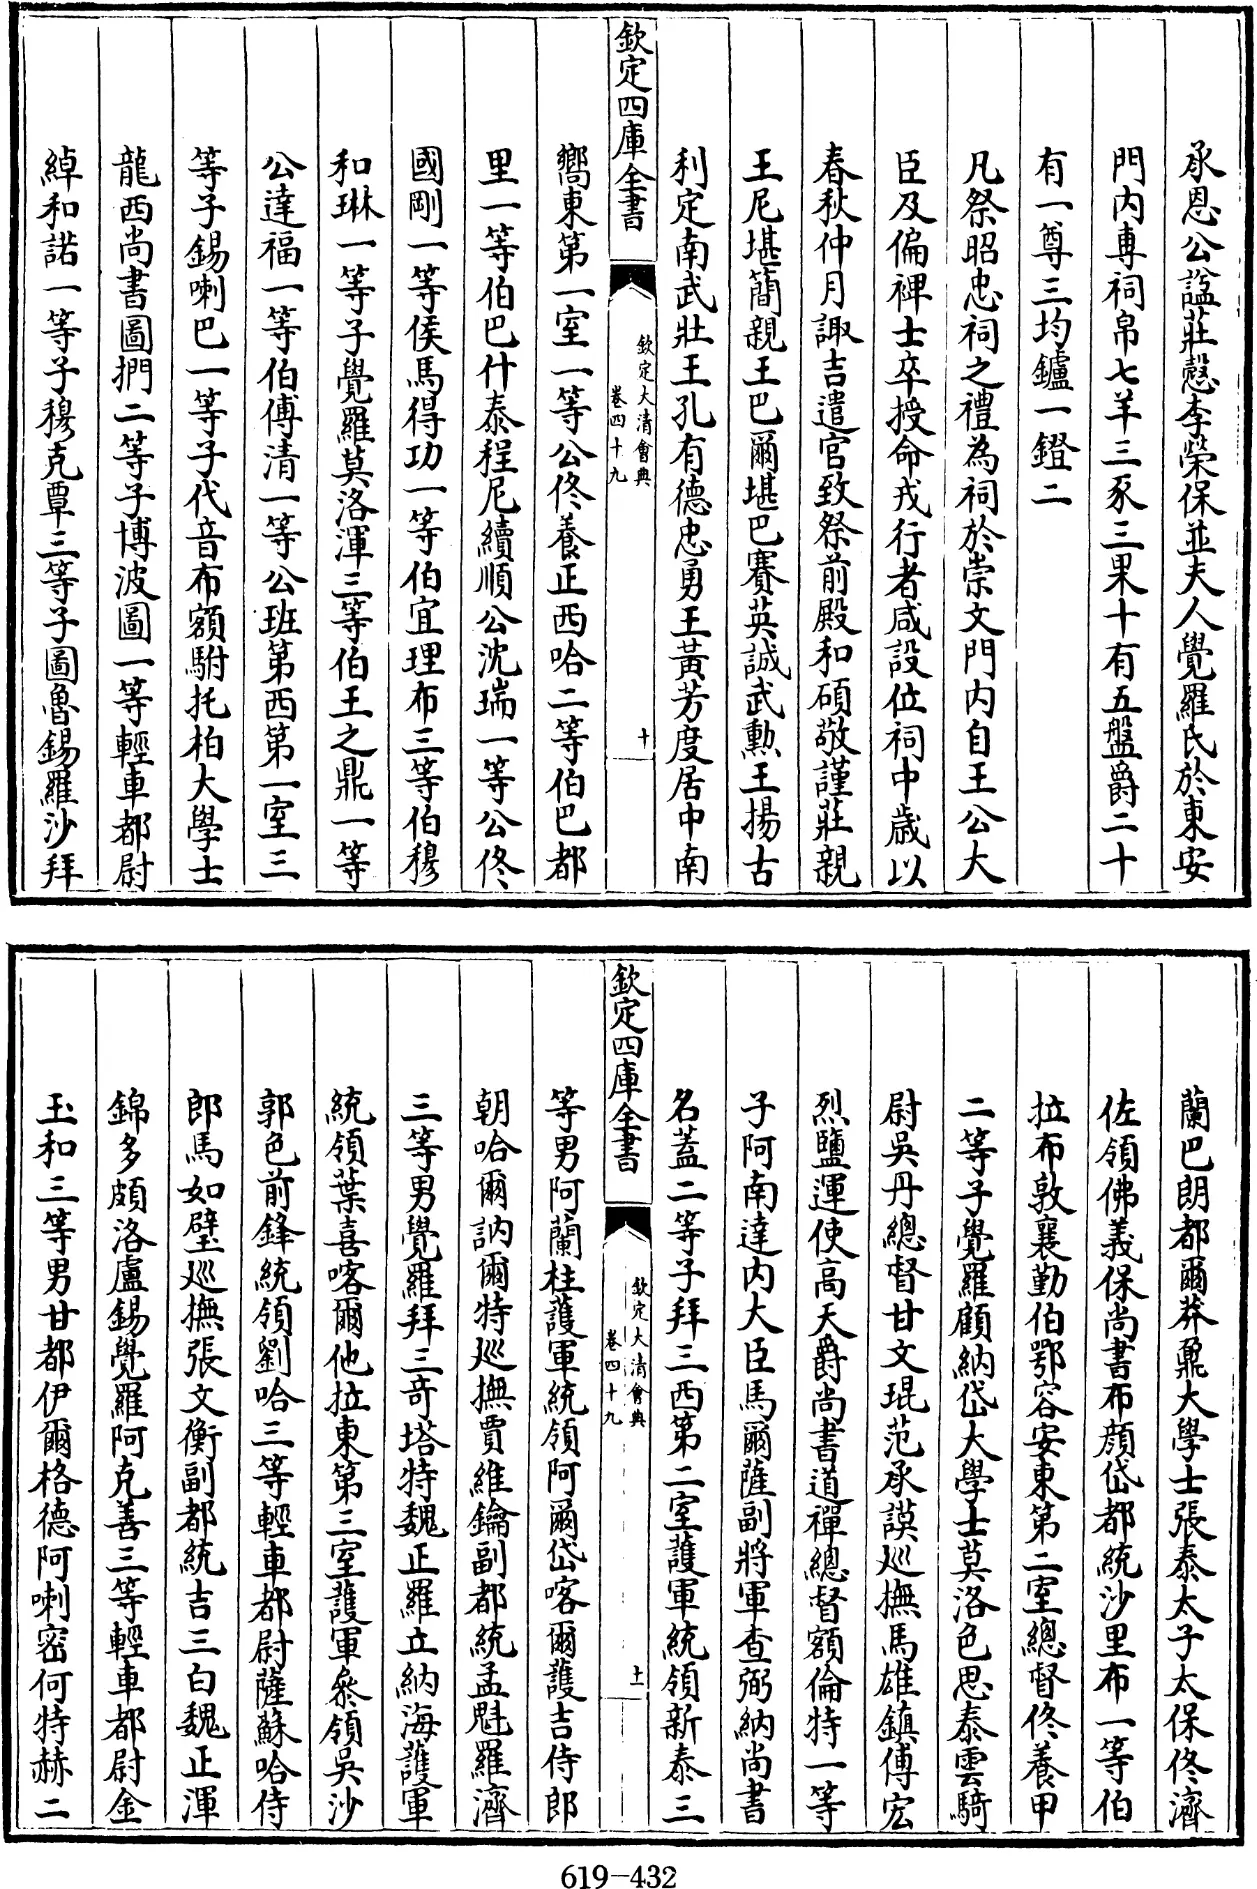 承恩公諡莊慤李榮保並夫人覺羅氏於東安
門内專祠帛七羊三豕三果十有五盤爵二十
有一尊三均鑪一鐙二
凡祭昭忠祠之禮為祠於崇文門内自王公大
臣及偏裨士卒授命戎行者咸設位祠中歲以
春秋仲月諏吉遣官致祭前殿和碩敬謹莊親
王尼堪簡親王巴爾堪巴賽英誠武勲王揚古
利定南武壯王孔有德忠勇王黃芳度居中南
欽定四庫全書
欽定大清會典
卷四十九
十
嚮東第一室一等公佟養正西哈二等伯巴都
里一等伯巴什泰程尼續順公沈瑞一等公佟
國剛一等侯馬得功一等伯宜理布三等伯穆
和琳一等子覺羅莫洛渾三等伯王之鼎一等
公達福一等伯傅清一等公班第西第一室三
等子錫喇巴一等子代音布額駙托柏大學士
龍西尚書圖捫二等子博波圖一等輕車都尉
綽和諾一等子穆克覃三等子圖魯錫羅沙拜
蘭巴朗都爾莽鼐大學士張泰太子太保佟濟
佐領佛義保尚書布顔岱都統沙里布一等伯
拉布敦襄勤伯鄂容安東第二室總督佟養甲
二等子覺羅顧納岱大學士莫洛色思泰雲騎
尉吳丹總督甘文琨范承謨巡撫馬雄鎮傅宏
烈鹽運使高天爵尚書道禪總督額倫特一等
子阿南達内大臣馬爾薩副將軍查弼納尚書
名蓋二等子拜三西第二室護軍統領新泰三
欽定四庫全書
欽定大清會典
卷四十九
十一
等男阿蘭柱護軍統領阿爾岱喀爾護吉侍郎
朝哈爾訥爾特巡撫賈維鑰副都統孟魁羅濟
三等男覺羅拜三奇塔特魏正羅立納海護軍
統領葉喜喀爾他拉東第三室護軍叅領吳沙
郭色前鋒統領劉哈三等輕車都尉薩蘇哈侍
郎馬如璧巡撫張文衡副都統吉三白魏正渾
錦多頗洛盧錫覺羅阿克善三等輕車都尉金
玉和三等男甘都伊爾格德阿喇密何特赫二
619-432